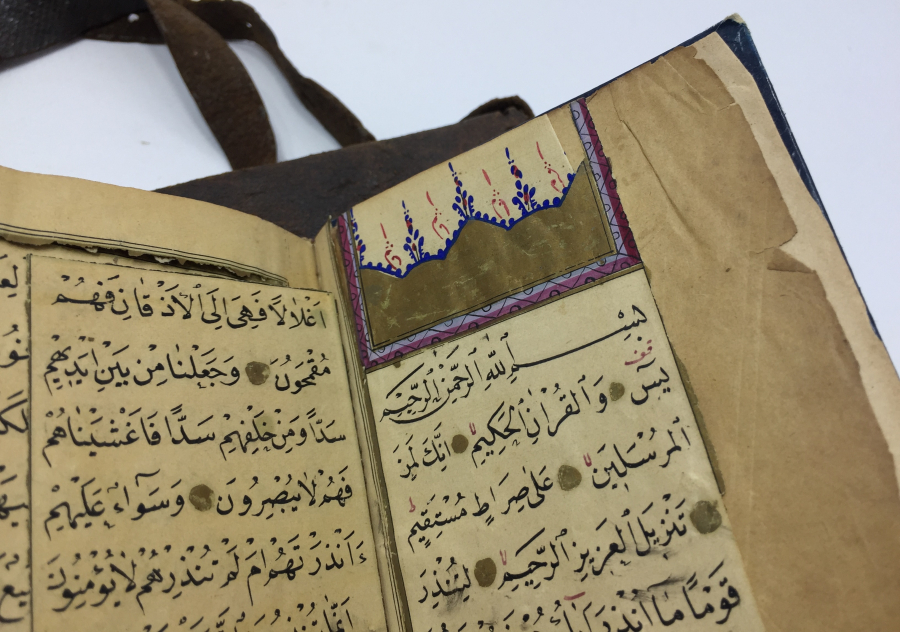 بِسْمِ اللّٰهِ الرَّحْمٰنِ الرَّحِيمِ
يٰسٓ وَالْقُرْاٰنِ الْحَكِيمِ اِنَّكَ لَمِنَ
الْمُرْسَلِينَ عَلٰى صِرَاطٍ مُسْتَقِيمٍ
تَنْزِيلَ الْعَزِيزِ الرَّحِيمِ لِتُنْذِرَ
قَوْمًا مَا اُنْذِرَ
اَغْلَالًا فَهِىَ اِلَى الْاَذْقَانِ فَهُمْ
مُقْمَحُونَ وَجَعَلْنَا مِنْ بَيْنِ اَيْدِيهِمْ
سَدًّا وَمِنْ خَلْفِهِمْ سَدًّا فَاَغْشَيْنَاهُمْ
فَهُمْ لَا يُبْصِرُونَ وَسَوَاءٌ عَلَيْهِمْ
ءَاَنْذَرْتَهُمْ اَمْ لَمْ تُنْذِرْهُمْ لَا يُؤْمِنُونَ